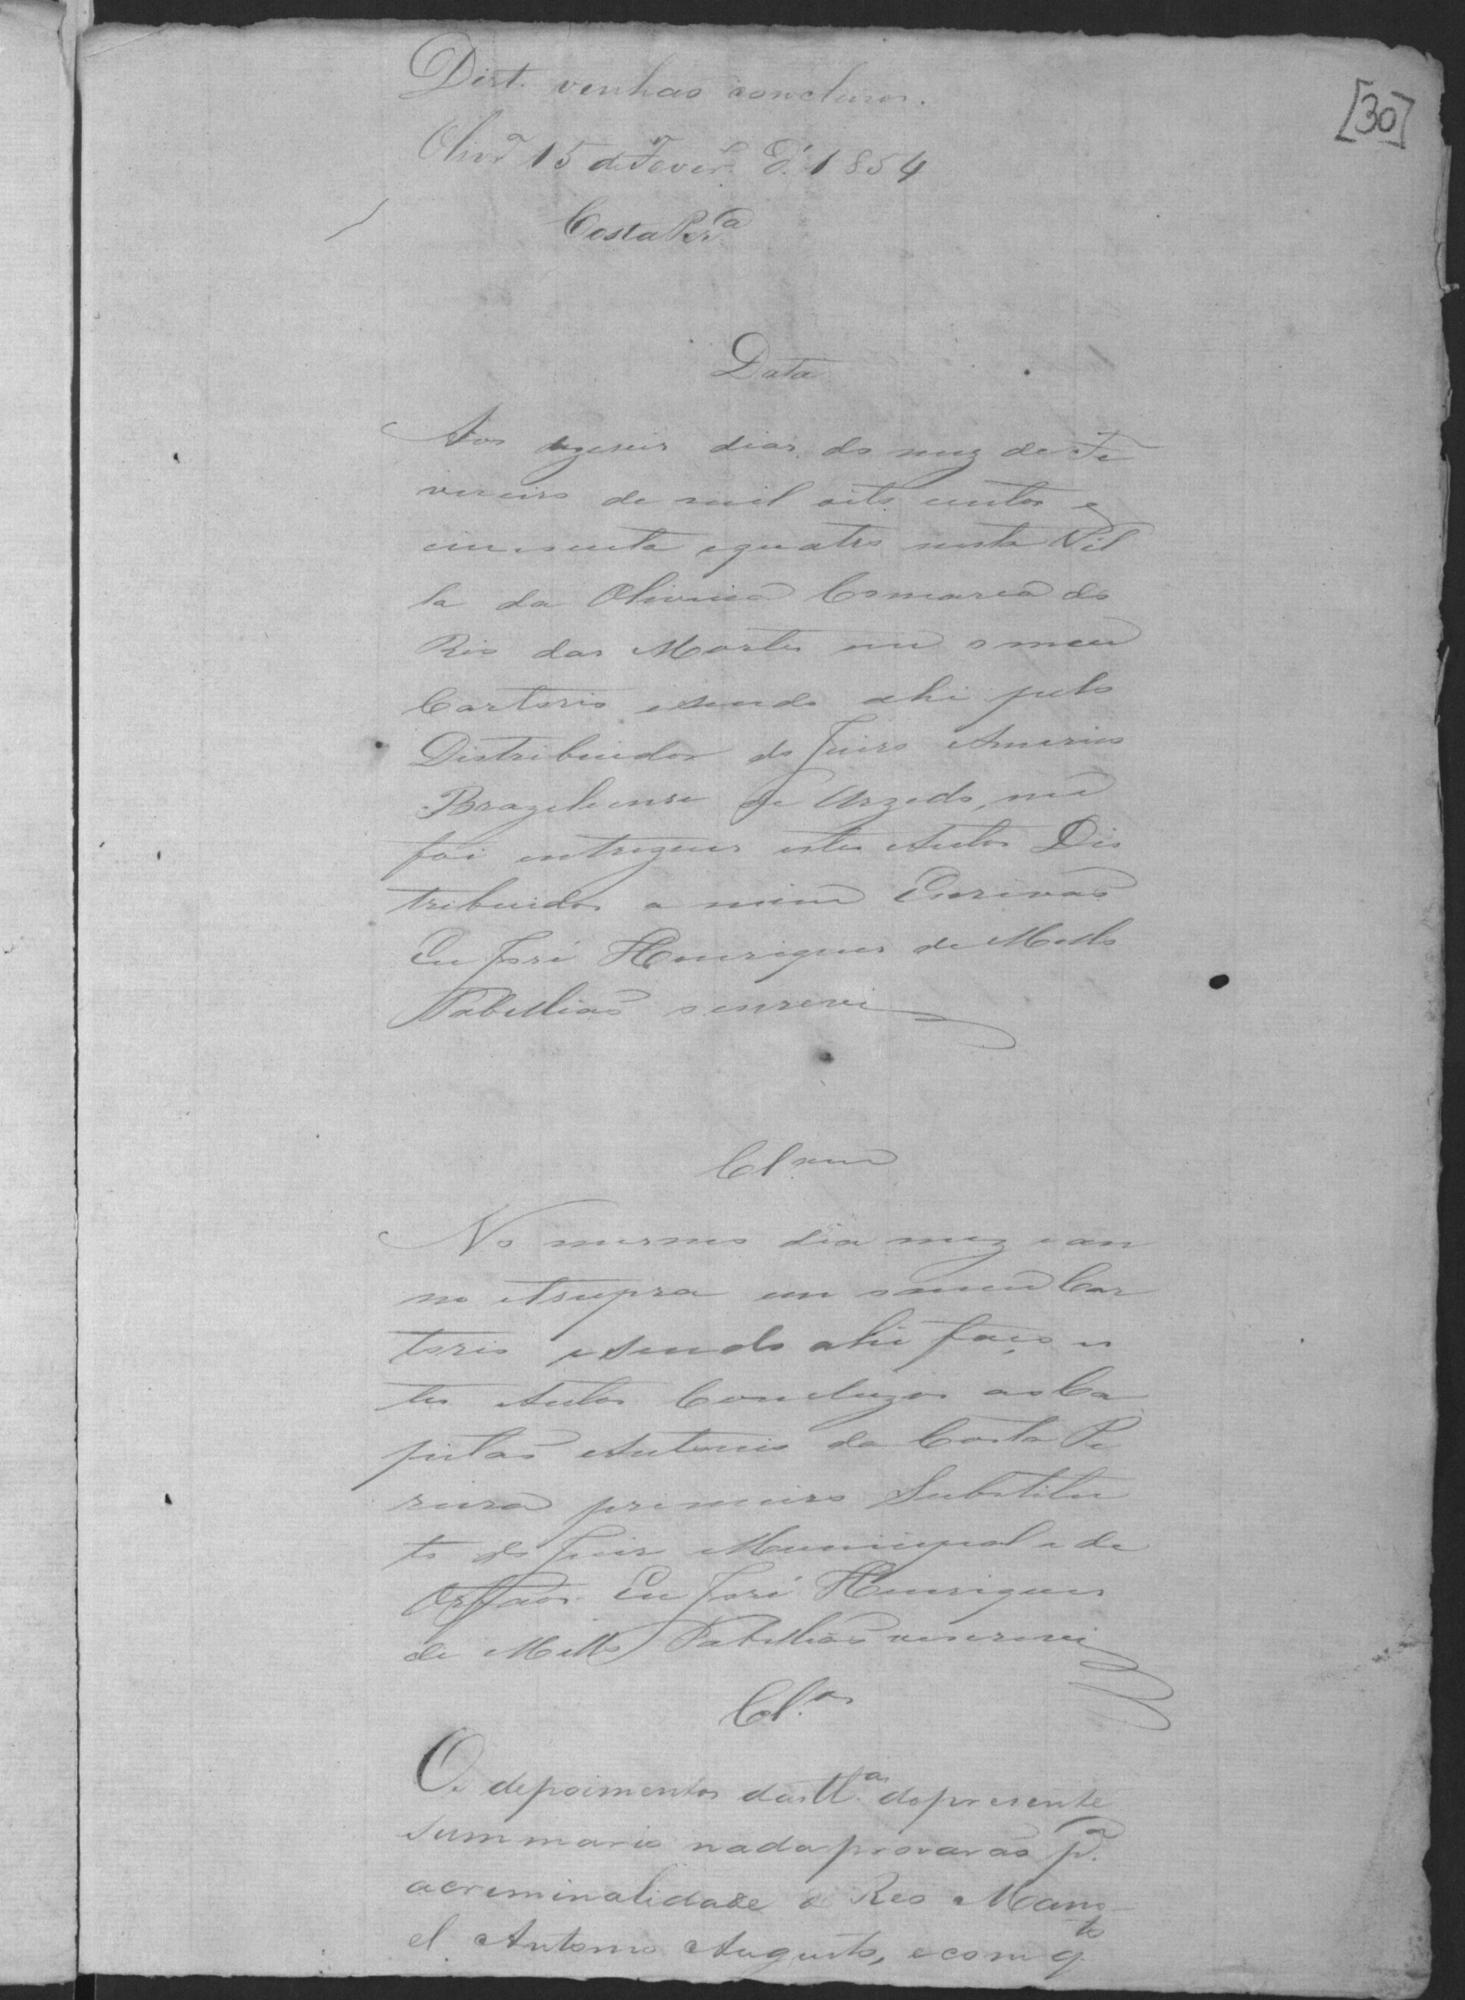 [30]
Dist. venhaõ concluzos.
Olivrª 15 de Fever.º d' 1854
Costa Perª
Data
Aos dezeseis dias do mez de Fe
vereiro de mil oito centos e
cincoenta e quatro nesta Vil
la da Oliveira Comarca do
Rio das Mortes em o meu
Cartorio e sendo ahi pelo
Distribuidor do Juizo Americo
Braziliense de Azedo, me
foi entregues estes Autos Dis
tribuidos a mim Escrivaõ
Eu José Henriques de Mello
Tabelliaõ o escrevi
Cl.zam
No mesmo dia mez e an
no et supra em o meu Car
torio e sendo ahi faço es
tes Autos Concluzos ao Ca
pitaõ Antonio da Costa Pe
reira primeiro Substitu
to do Juiz Municipal e de
Orfaõs Eu José Henriques
de Mello Tabelliaõ o escrevi
Cl.os
Os depoimentos das tt.as do presente
summario nada provaraõ p.ª
a creminalidade do Reo Mano
el Antonio Augusto, e com q.to